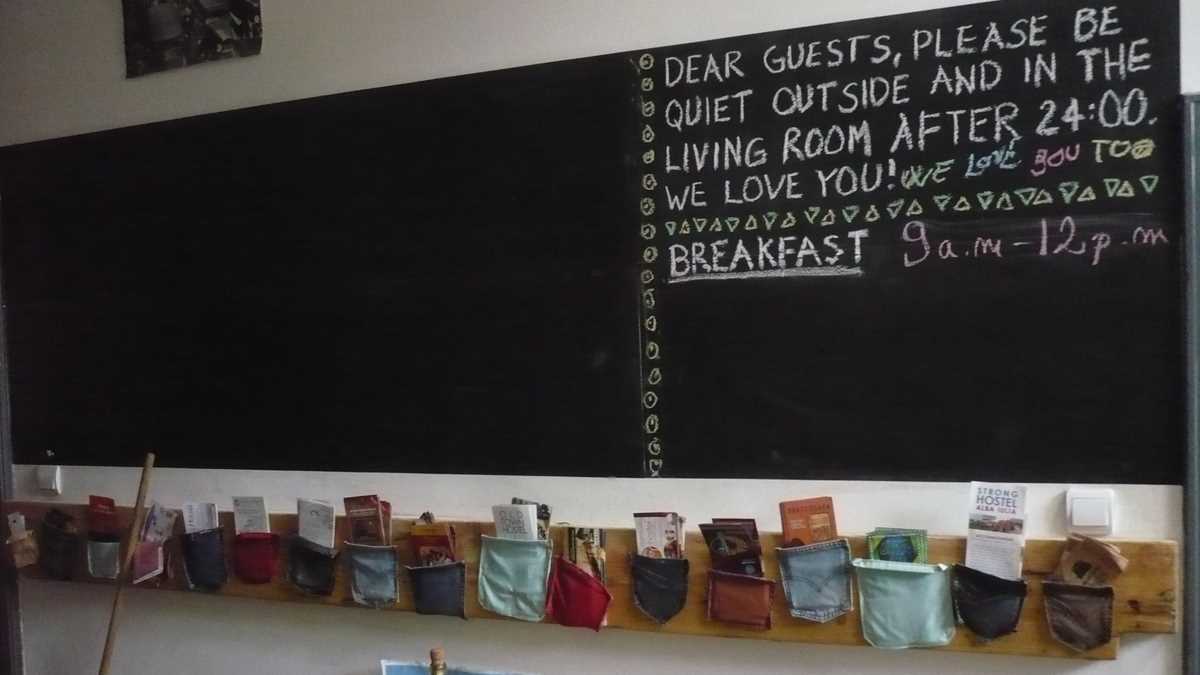 DEAR GUESTS, PLEASE BE
QUIET OUTSIDE AND IN THE
LIVING ROOM AFTER 24:00.
WE LOVE YOU! WE LOVE YOU TOO
BREAKFAST 9a.m-12p.m
OLD
TOWN
HOSTEL
STRONG
HOSTEL
ALBA IULIA